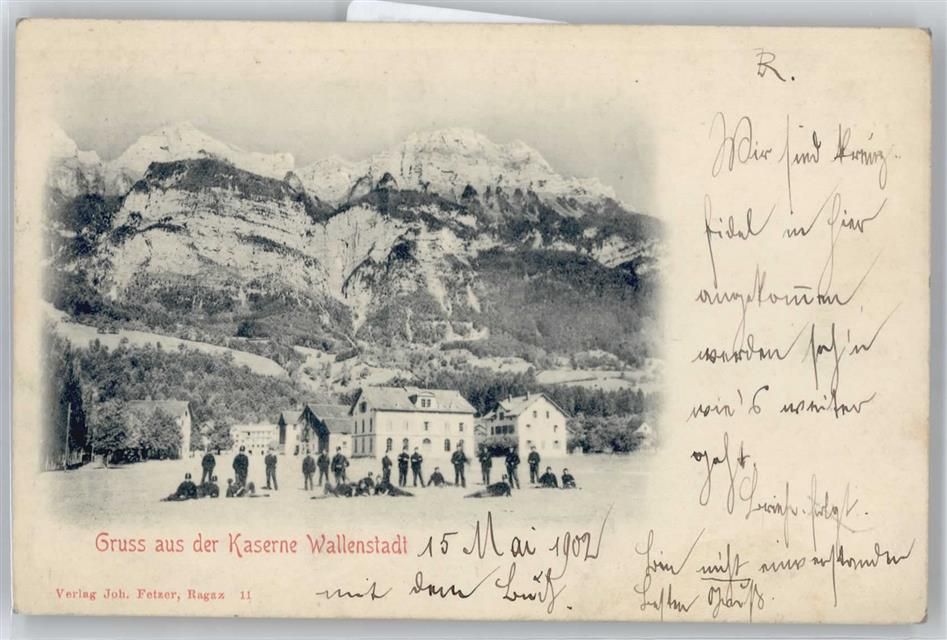 R.
Wir sind kreuz-
fidel in hier
angekom̅en
werden seh'n
wie's weiter
geht.
Brief folgt.
Gruss aus der Kaserne Wallenstadt 15 Mai 1902
mit dem
Bin nicht einverstanden
besten Gruß.
Verlag Joh. Fetzer, Ragaz 11